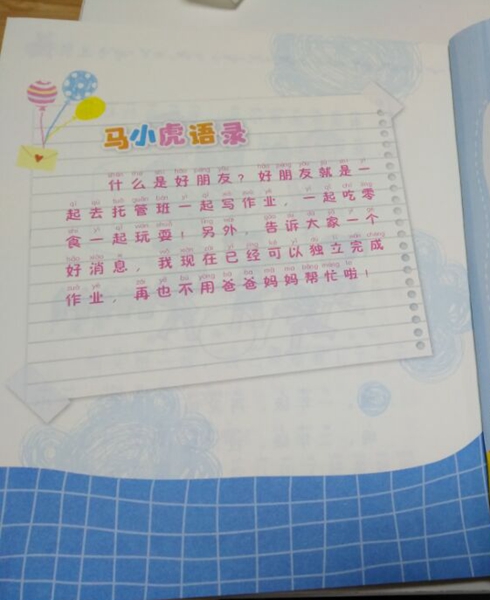 马小虎语录
什么是好朋友？好朋友就是一
起去托管班一起写作业，一起吃零
食一起玩耍！另外，告诉大家一个
好消息，我现在已经可以独立完成
作业，再也不用爸爸妈妈帮忙啦！